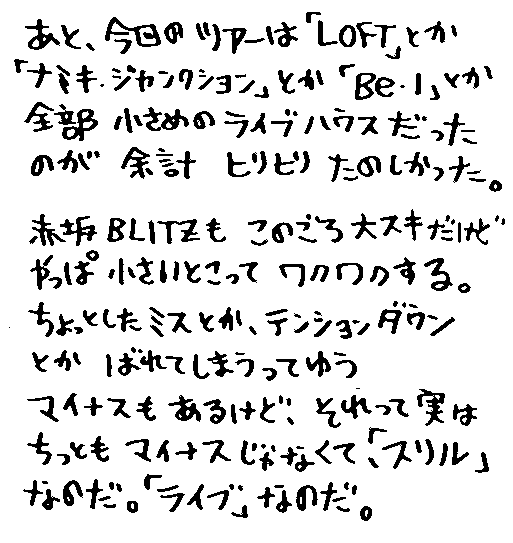 あと、今回のツアーは「LOFT」とか
「ナミキ・ジャンクション」とか「Be・1」とか
全部 小さめのライブハウスだった
のが 余計 ヒリヒリ たのしかった。
赤坂BLITZも このごろ大スキだけど
やっぱ。小さいとこって ワクワクする。
ちょっとしたミスとか、テンションダウン
とか ばれてしまうってゆう
マイナスも あるけど、それって実は
ちっとも マイナスじゃなくて、「スリル」
なのだ。「ライブ」なのだ。